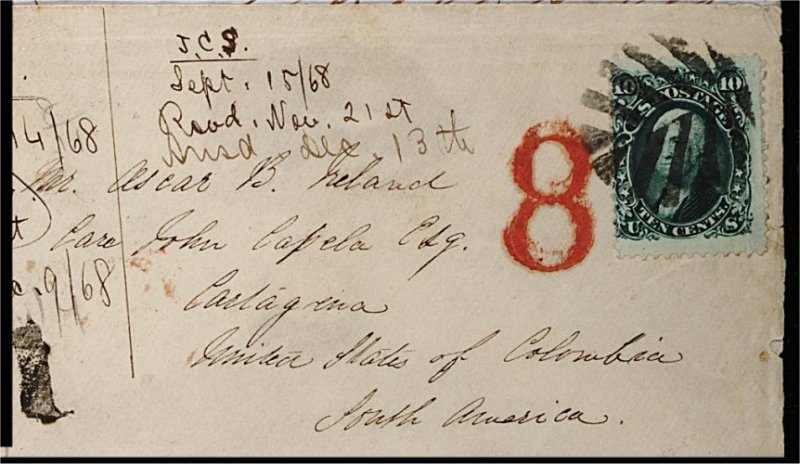 J.C.S.
Sept. 15/68
Recd. Nov. 21st
Ansd Dec 13th
14/68
9/68
8
10 10
U.S. POSTAGE
TEN CENTS.
U S
Mr. Oscar B. Ireland
Care John Capela Esq.
Cartagena
United States of Colombia
South America.